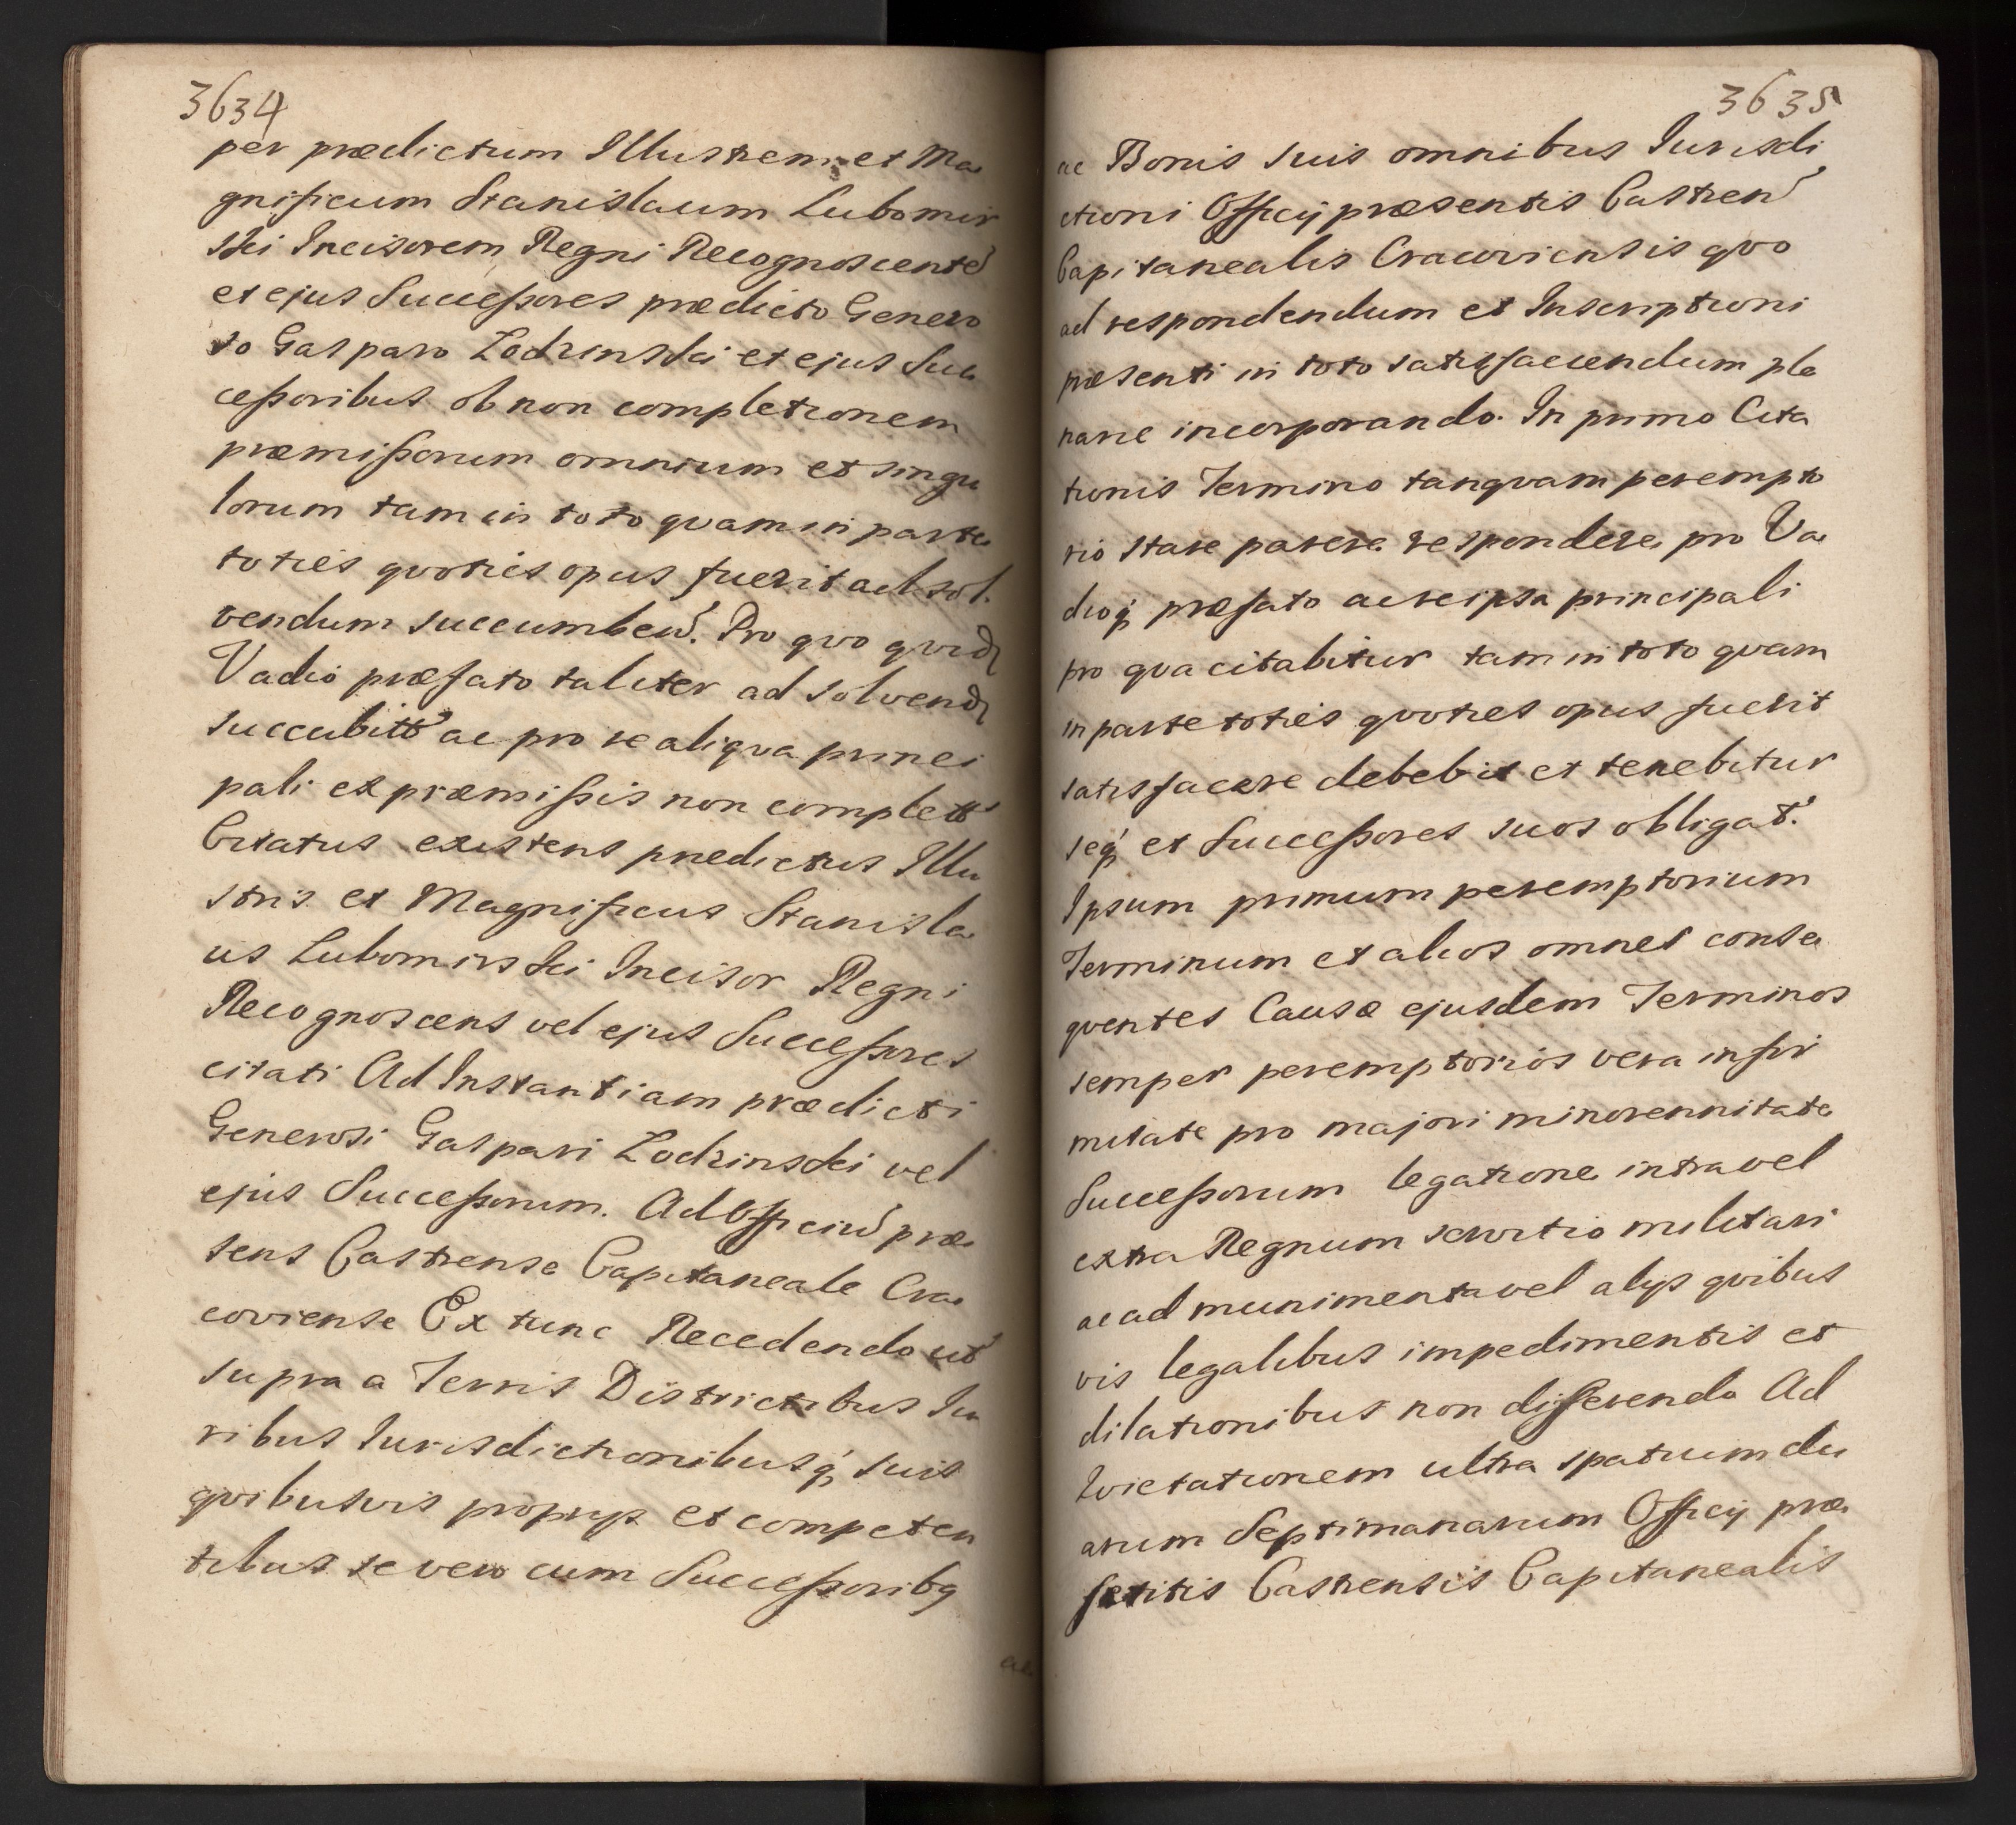 3634
per prædictum Illustrem et Ma
gnificum Stanislaum Lubomir
ski Incisorem Regni Recognoscente
et ejus Successores prædicto Genero
so Gasparo Zodzinski et ejus Suc
cessoribus ob non completionem
præmissorum omnium et singu
lorum tam in toto qvam in parte
toties qvoties opus fuerit ad sol
vendum succumben. Pro qvo qvid
Vadio præfato taliter ad solvend
succubitt ac pro re aliqva princi
pali ex præmissis non complett
Citatus existens prædictus Illu
stris et Magnificus Stanisla
us Lubomirski Incisor Regni
Recognoscens vel ejus Successores
citati Ad Instantiam prædicti
Generosi Gaspari Zodzinski vel
ejus Successorum. Ad Officiu præ
sens Castrense Capitaneale Cra
coviense Ex tunc Recedendo ut
supra a Terris Districtibus Iu
ribus Iurisdictionibusq suis
qvibusvis proprys et competen
tibus se vero cum Successoribq
ac
3635
ac Bonis suis omnibus Iurisdi
ctioni Officij præsentis Castren
Capitanealis Cracoviensis qvo
ad respondendum et Inscriptioni
præsenti in toto satisfaciendum ple
narie incorporando. In primo Cita
tionis Termino tanqvam perempto
rio stare parere respondere pro Va
dioq præfato ac re ipsa principali
pro qva citabitur tam in toto qvam
in parte toties qvoties opus fuerit
satisfacere debebit et tenebitur
seq et Successores suos obligat.
Ipsum primum peremptorium
Terminum et alios omnes conse
qventes Causæ ejusdem Terminos
semper peremptorios vera infir
mitate pro majori minorennitate
Successorum legatione intra vel
extra Regnum servitio militari
ac ad munimenta vel alijs qvibus
vis legalibus impedimentis et
dilationibus non differendo Ad
Ivictationem ultra spatium du
arum Septimanarum Officij præ
sentis Castrensis Capitanealis